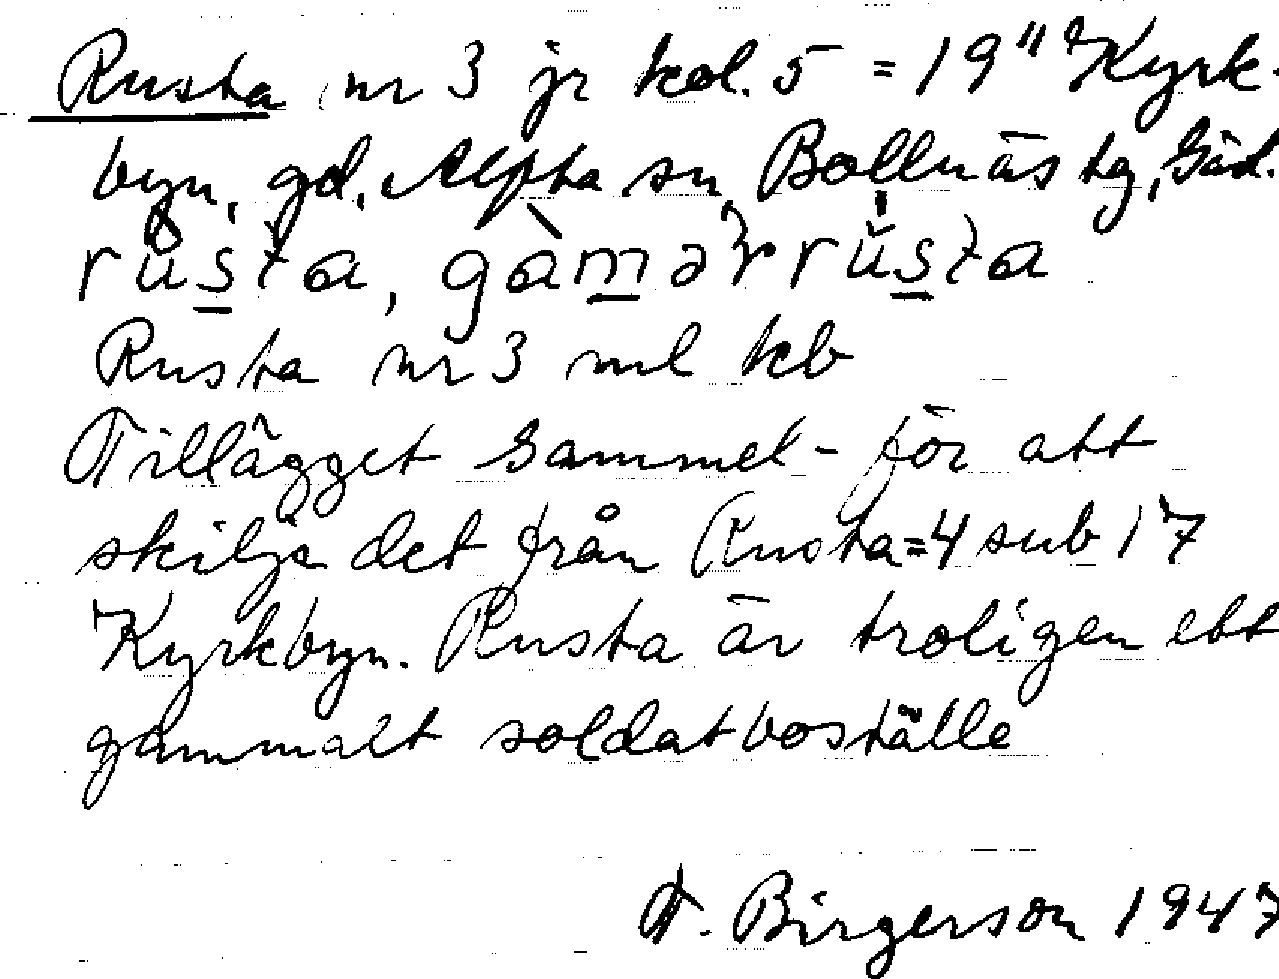 Rusta nr 3 jr kol. 5 = 19" Kyrk-
byn, gd, Alfta sn, Bollnäs tg, Gäd.
rusta, gàmərrusta
Rusta nr 3 ml kb
Tillägget Gammel- för att
skilja det från Rusta=4 sub 17
Kyrkbyn. Rusta är troligen ett
gammalt soldatboställe
T. Birgerson 1947